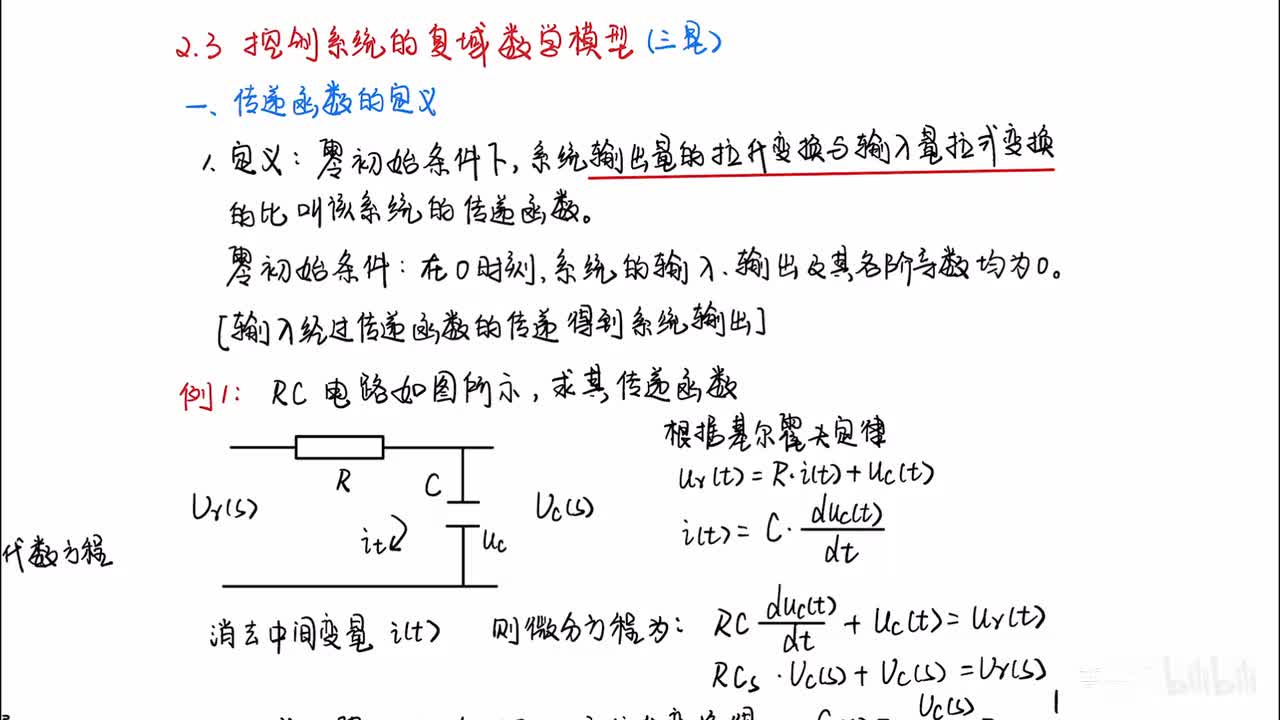 2.3 控制系统的复域数学模型(三是)
一、传递函数的定义
1. 定义：零初始条件下,系统输出量的拉氏变换与输入量拉式变换
的比叫该系统的传递函数。
零初始条件：在0时刻,系统的输入、输出及其各阶导数均为0。
[输入经过传递函数的传递得到系统输出]
例1: RC电路如图所示,求其传递函数
根据基尔霍夫定律
Ur(t)=R·i(t)+Uc(t)
i(t)=C·duc(t)/dt
R
C
Ur(s)
Uc(s)
it
Uc
代数方程
消去中间变量 i(t) 则微分方程为: RC duc(t)/dt + Uc(t)=Ur(t)
RCs·Uc(s)+Uc(s)=Ur(s)
Uc(s)
bilibili